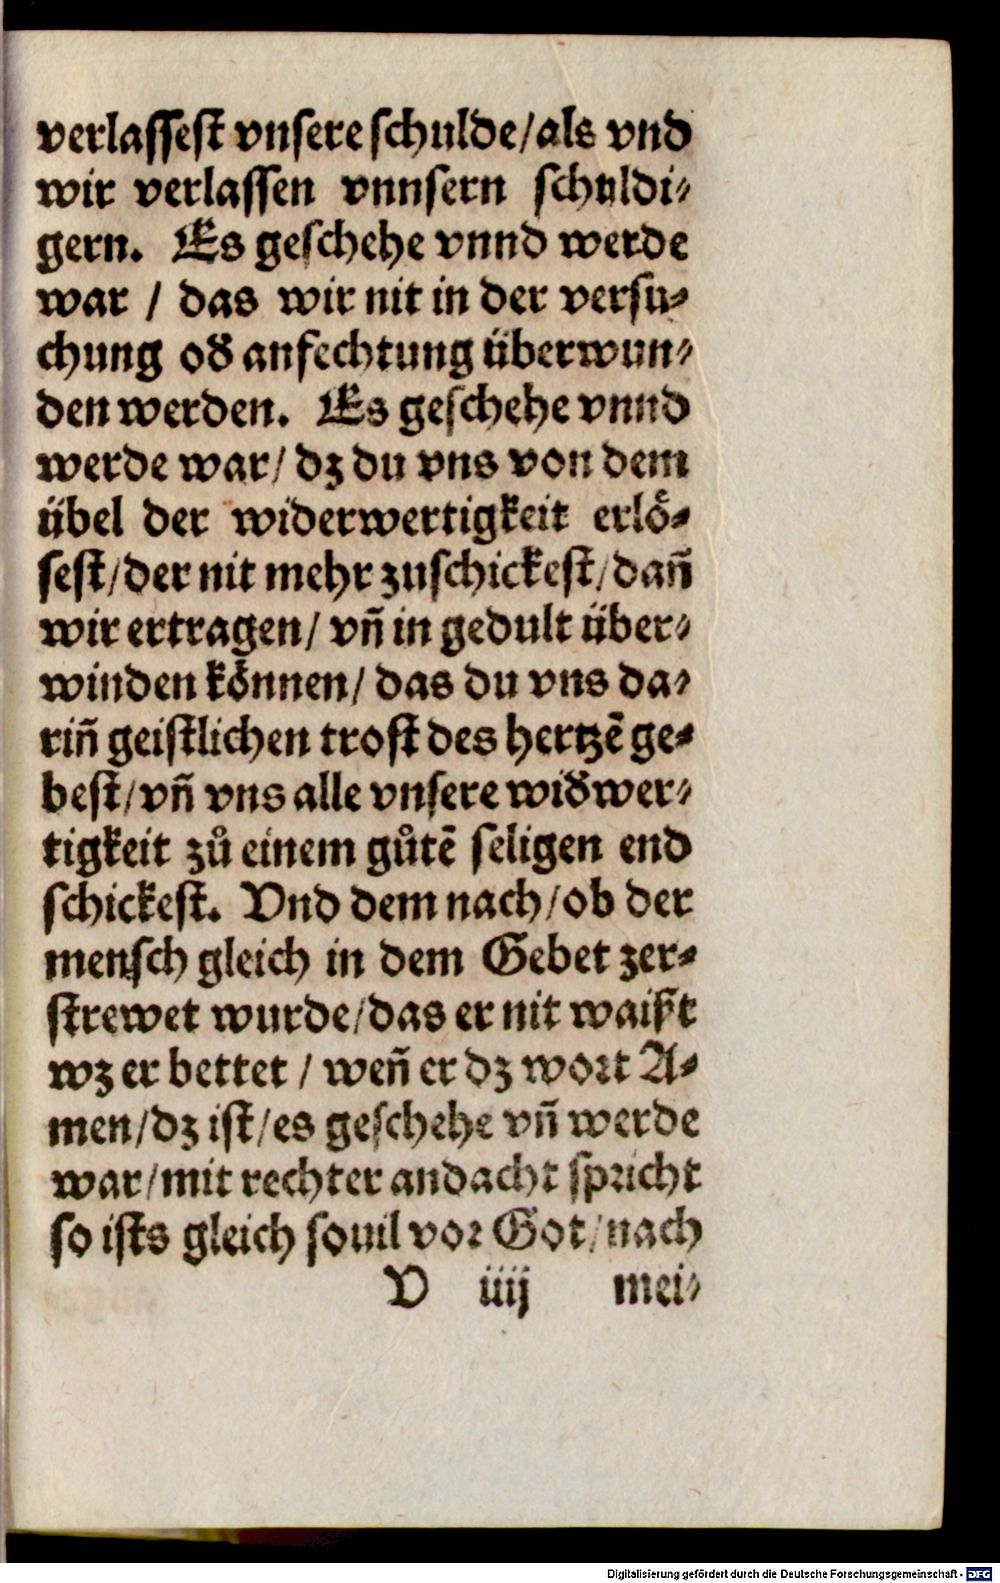 verlassest vnsere schulde/als vnd
wir verlassen vnnsern schuldi⸗
gern. Es geschehe vnnd werde
war / das wir nit in der versu⸗
chung oď anfechtung überwun⸗
den werden. Es geschehe vnnd
werde war/ dz du vns von dem
übel der widerwertigkeit erlö⸗
sest/der nit mehr zuschickest/dañ
wir ertragen/ vñ in gedult über⸗
winden können/ das du vns da⸗
riñ geistlichen trost des hertzē ge⸗
best/vñ vns alle vnsere wiďwer⸗
tigkeit zů einem gůtē seligen end
schickest. Vnd dem nach/ob der
mensch gleich in dem Gebet zer⸗
strewet wurde/das er nit waißt
wz er bettet / weñ er dz wort A⸗
men/dz ist/es geschehe vñ werde
war/mit rechter andacht spricht
so ists gleich souil vor Got/nach
V iiij mei⸗
Digitalisierung gefördert durch die Deutsche Forschungsgemeinschaft - DFG